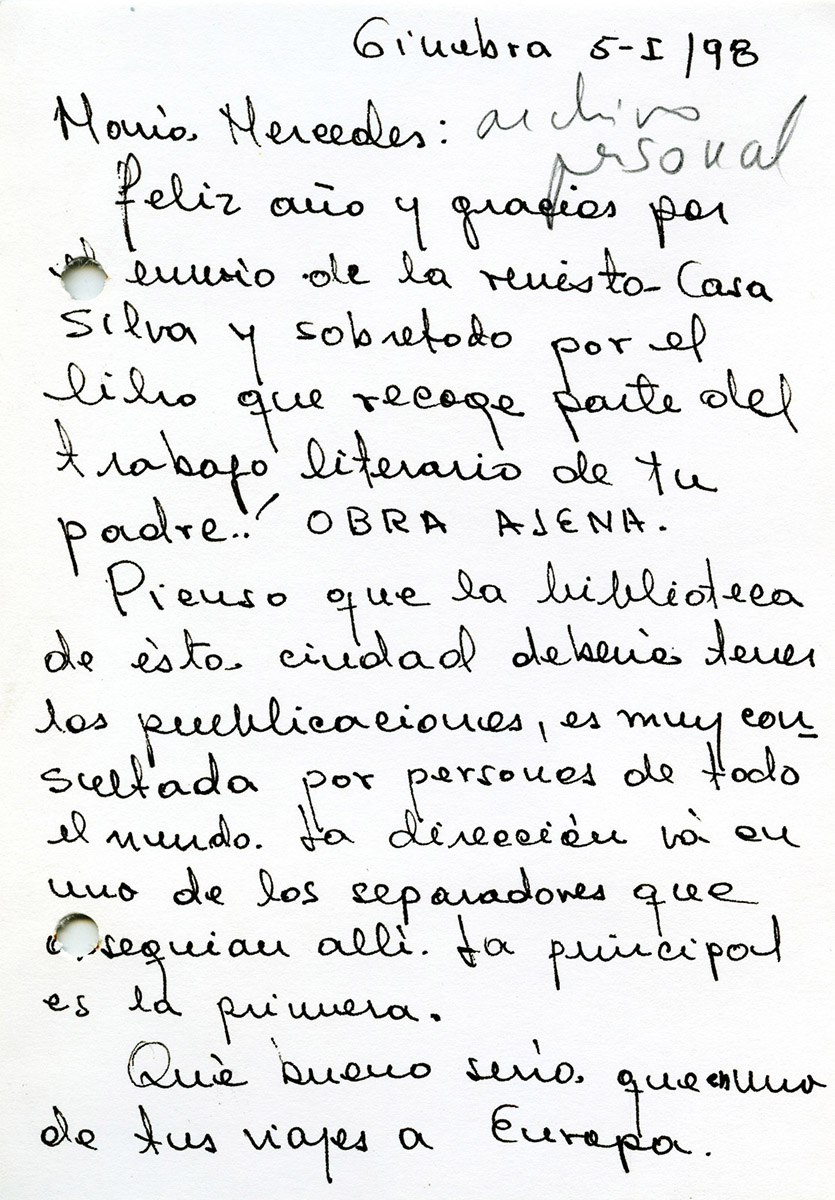 Ginebra 5-I/98
María Mercedes: archivo
personal
feliz año y gracias por
envio de la revista Casa
Silva y sobretodo por el
libro que recoge parte del
trabajo literario de tu
padre..! OBRA AJENA.
Pienso que la biblioteca
de ésta ciudad deberia tener
las publicaciones, es muy con-
sultada por personas de todo
el mundo. La dirección vá en
uno de los separadores que
obsequian alli. La principal
es la primera.
Qué bueno seria que en uno
de tus viajes a Europa.